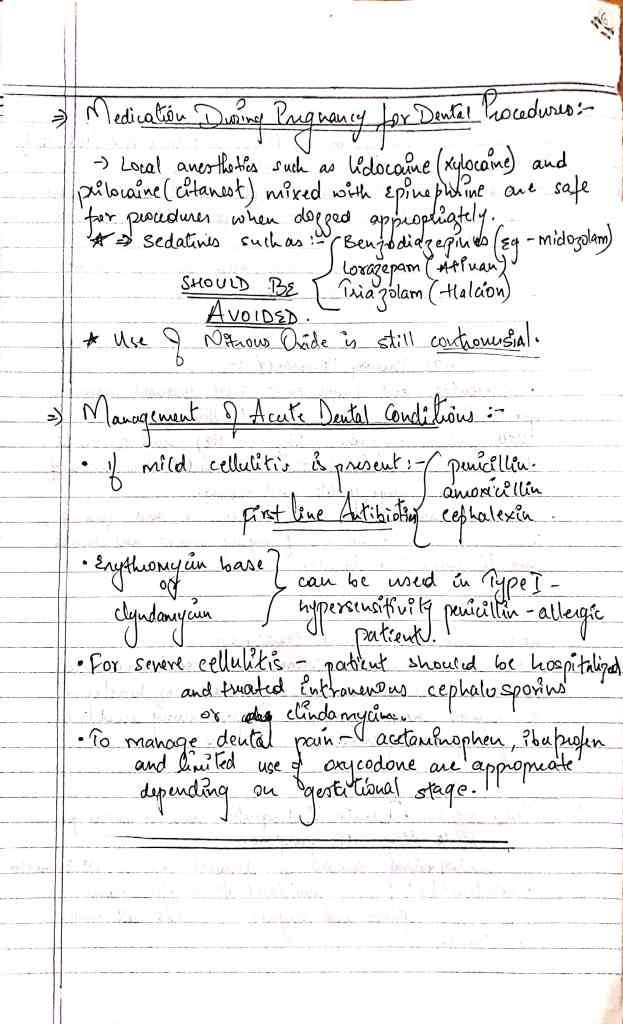 ⇒ Medication During Pregnancy for Dental Procedures:-
→ Local anesthetics such as lidocaine (xylocaine) and
prilocaine (citanest) mixed with Epinephrine are safe
for procedures when dogged appropriately.
* ⇒ Sedatives such as :- { Benzodiazepines (Eg - midozolam)
Lorazepam (Ativan)
SHOULD BE
Triazolam (Halcion)
AVOIDED.
* Use of Nitrous Oxide is still controversial.
⇒ Management of Acute Dental Conditions :-
• if mild cellulitis is present :- { penicillin.
amoxicillin
First line Antibiotics
cephalexin
• Erythromycin base
or
clyndamycin
} can be used in Type I -
hypersensitivity penicillin - allergic
patient.
• For severe cellulitis - patient should be hospitalized
and treated intravenous cephalosporins
or clindamycin.
• To manage dental pain - acetaminophen, ibuprofen
and limited use of oxycodone are appropreate
depending on gestational stage.